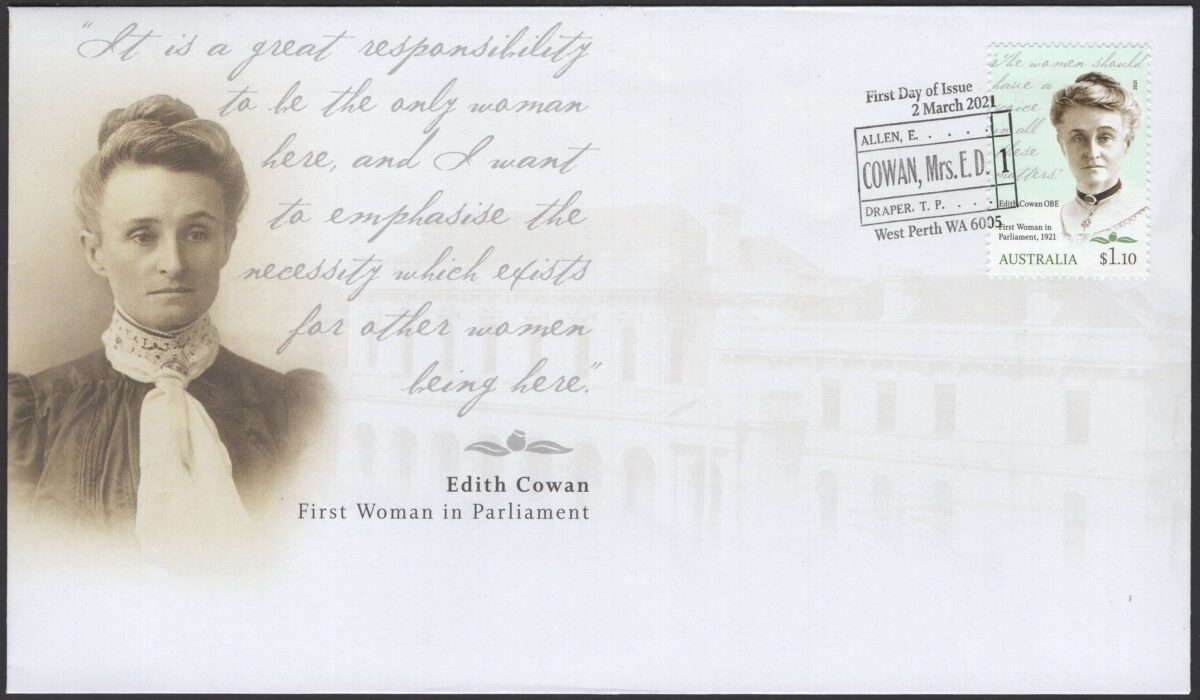 "It is a great responsibility
to be the only woman
here, and I want
to emphasise the
necessity which exists
for other women
being here."
Edith Cowan
First Woman in Parliament
First Day of Issue
2 March 2021
ALLEN, E. . . . . .
COWAN, Mrs. E. D. 1
DRAPER, T. P. . . . .
West Perth WA 6005
The women should
have a
voice
in all
these
matters."
2021
Edith Cowan OBE
First Woman in
Parliament, 1921
AUSTRALIA $1.10